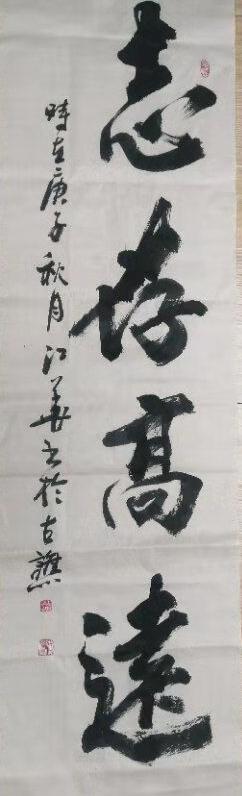 志存高遠
時在庚子秋月江華書於古譙